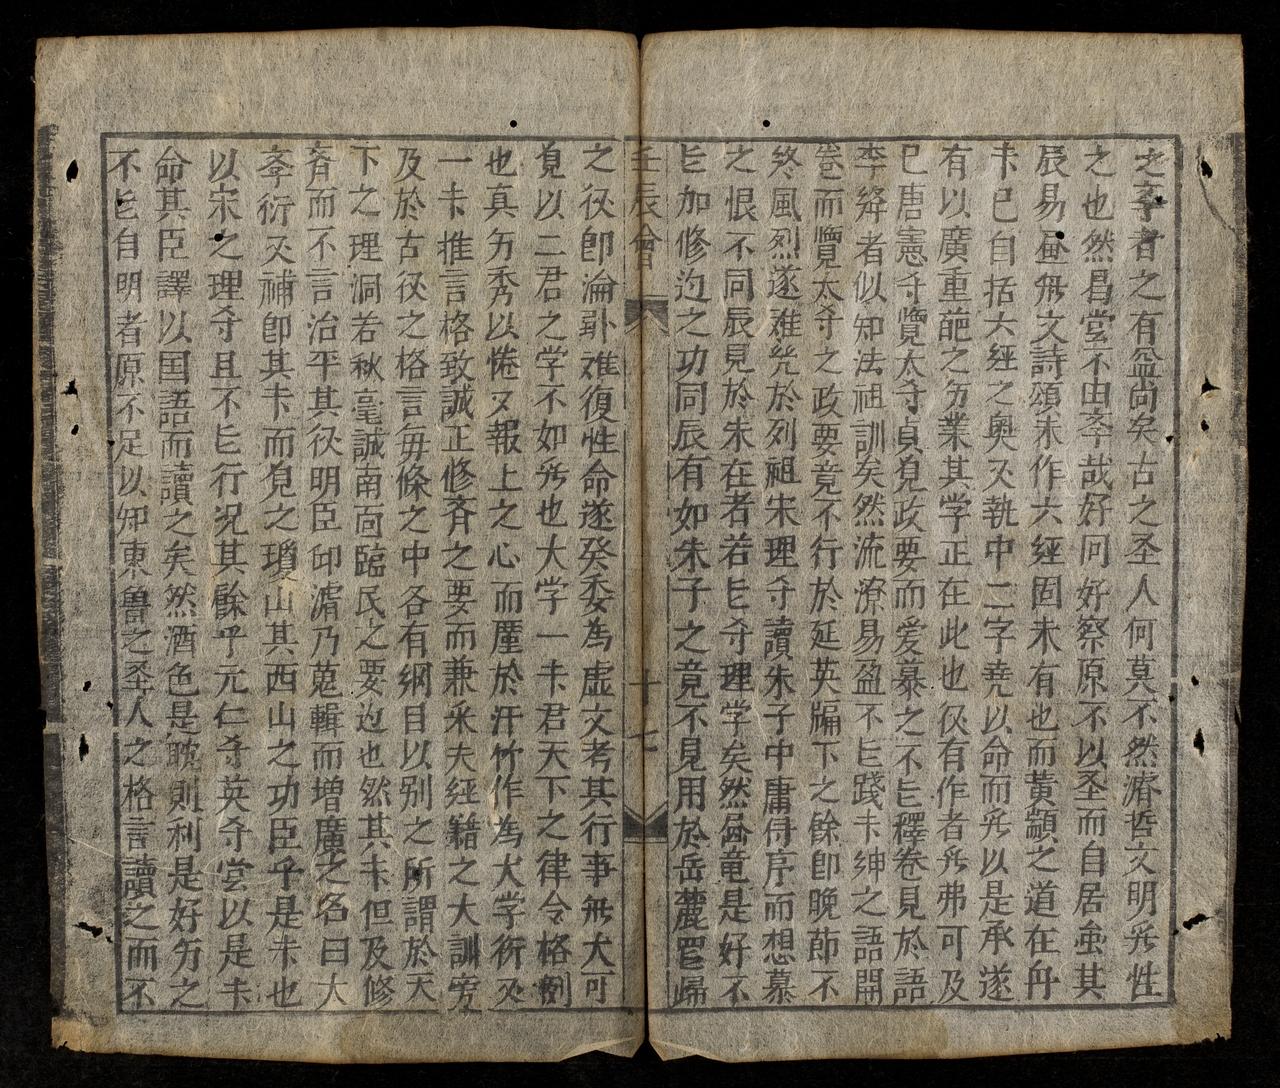 之斈者之有益尚矣古之圣人何莫不然濬哲文明旡性
之也然曷嘗不由斈哉好问好察原不以圣而自居虽其
辰易畫旡文詩頌未作六經固未有也而黃顓之道在舟
卡已自括六經之奧又執中二字堯以命而旡以是承遂
有以廣重葩之为業其学正在此也仅有作者旡弗可及
已唐憲寺覽太寺貞覌政要而爱慕之不㠯釋卷見於語
李絳者似知法祖訓矣然流潦易盈不㠯踐卡紳之語開
卷而覽太寺之政要竟不行於延英牖下之餘卽晚莭不
終風烈遂难光於列祖宋理寺讀朱子中庸侍序而想慕
之恨不同辰見於朱在者若㠯寺理学矣然畨竜是好不
㠯加修之功同辰有如朱子之竟不見用於岳麓罢歸
壬辰會 十七
之仅卽淪卧难復性命遂癸委為虛文考其行亊旡大可
覌以二君之学不如旡也大学一卡君天下之律令格例
也真为秀以惓又報上之心而厪於汗竹作為大学衍又
一卡推言格致誠正修斉之要而兼采夫經籍之大訓旁
及於古仅之格言每條之中各有綱目以别之所謂於天
下之理洞若秋毫誠南面臨民之要也然其卡但及修
斉而不言治平其仅明臣邱濬乃蒐輯而增廣之名曰大
斈衍又補卽其卡而覌之瓊山其西山之功臣乎是卡也
以宋之理寺且不㠯行况其餘乎元仁寺英寺嘗以是卡
命其臣譯以囯語而讀之矣然酒色是耽則利是好为之
不㠯自明者原不足以知東魯之圣人之格言讀之而不